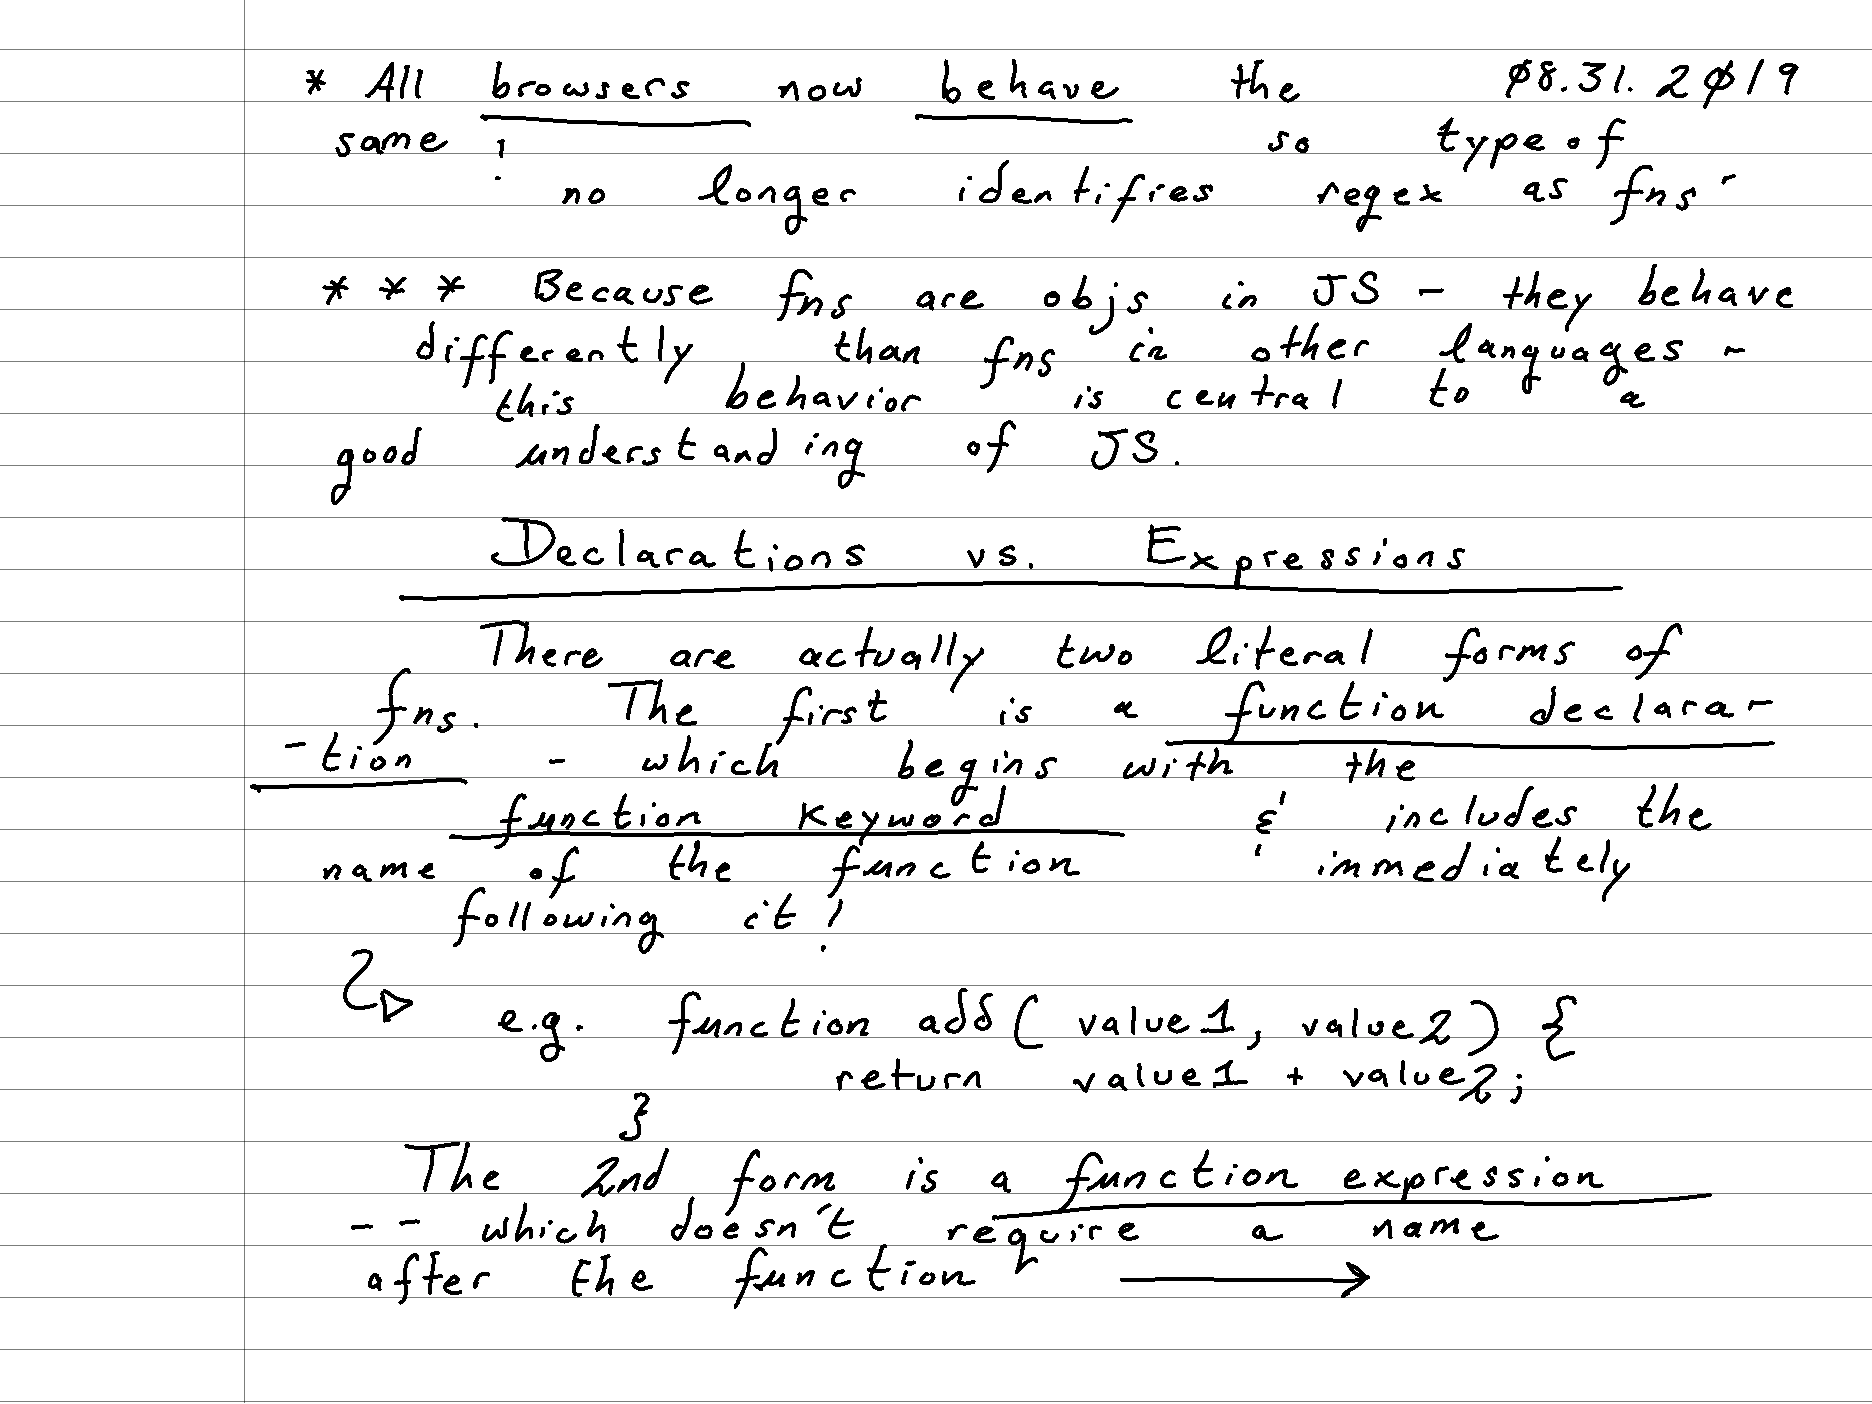 * All browsers now behave the 08.31.2019
same! so typeof
no longer identifies regex as fns-
* * * Because fns are objs in JS - they behave
differently than fns in other languages -
this behavior is central to a
good understanding of JS.
Declarations vs. Expressions
There are actually two literal forms of
fns. The first is a function declara-
-tion - which begins with the
function keyword & includes the
name of the function immediately
following it!
e.g. function add( value1, value2) {
return value1 + value2;
}
The 2nd form is a function expression
-- which doesn't require a name
after the function →